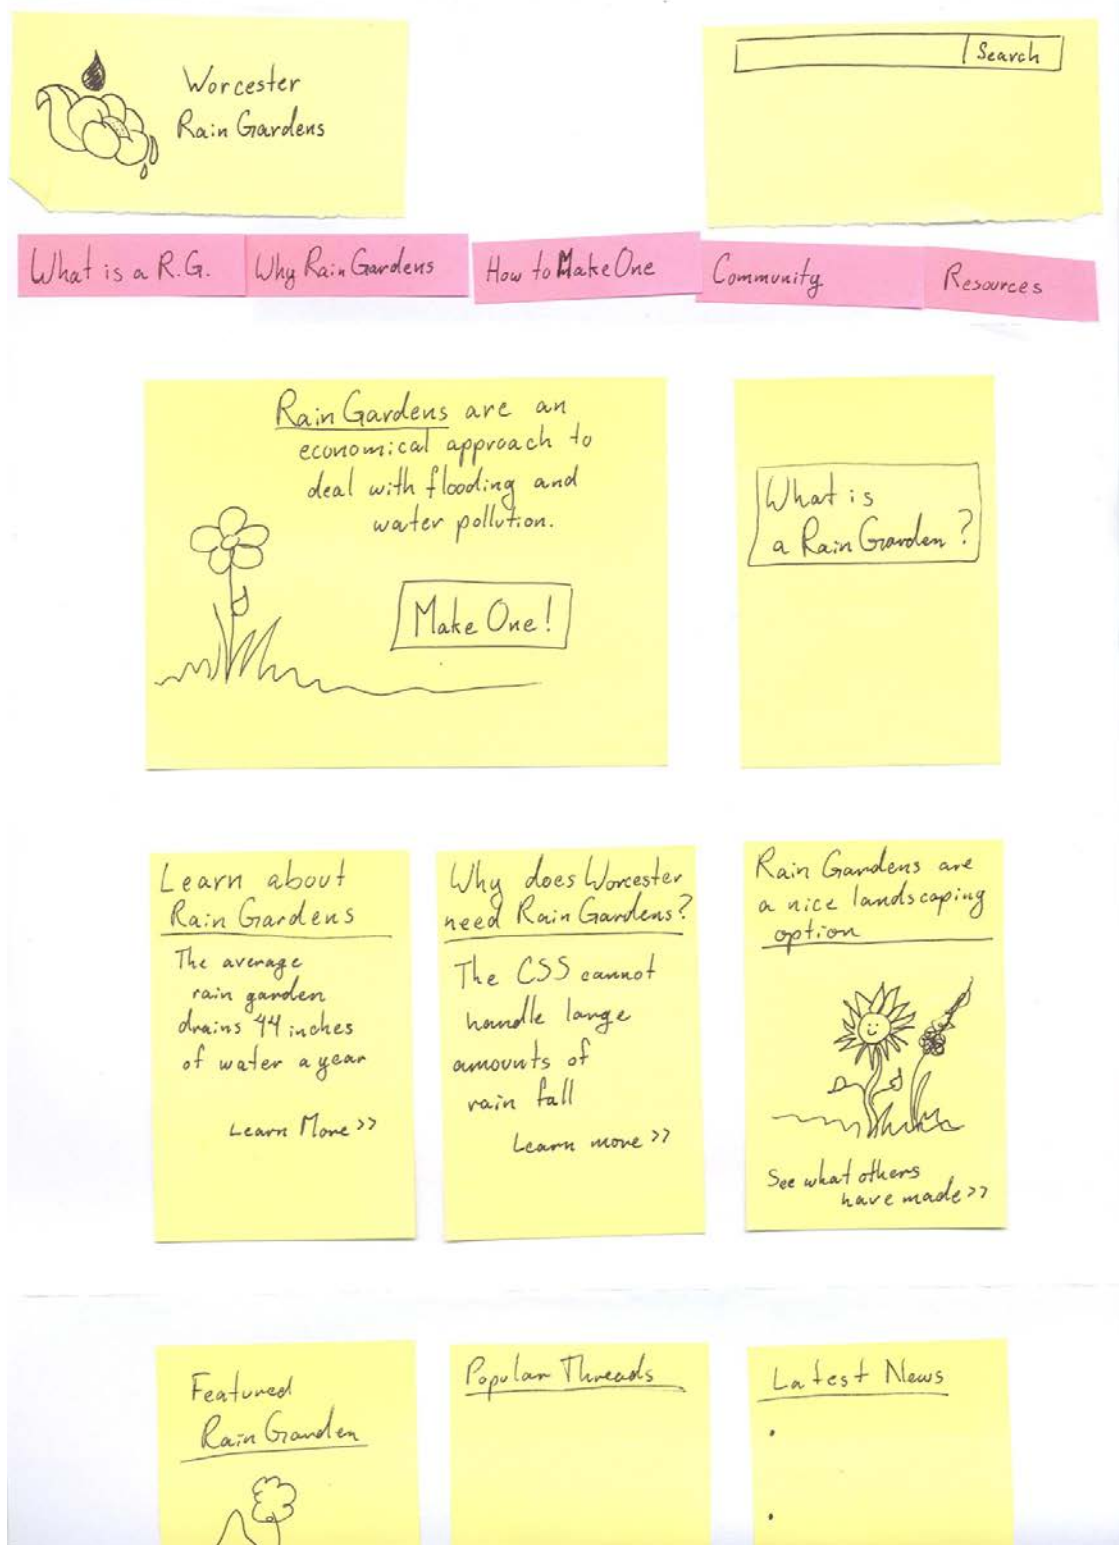 Worcester
Rain Gardens
Search
What is a R.G.
Why Rain Gardens
How to Make One
Community
Resources
Rain Gardens are an
economical approach to
deal with flooding and
water pollution.
Make One!
What is
a Rain Garden?
Learn about
Rain Gardens
The average
rain garden
drains 44 inches
of water a year
Learn More >>
Why does Worcester
need Rain Gardens?
The CSS cannot
handle large
amounts of
rain fall
Learn more >>
Rain Gardens are
a nice landscaping
option
See what others
have made >>
Featured
Rain Garden
Popular Threads
Latest News